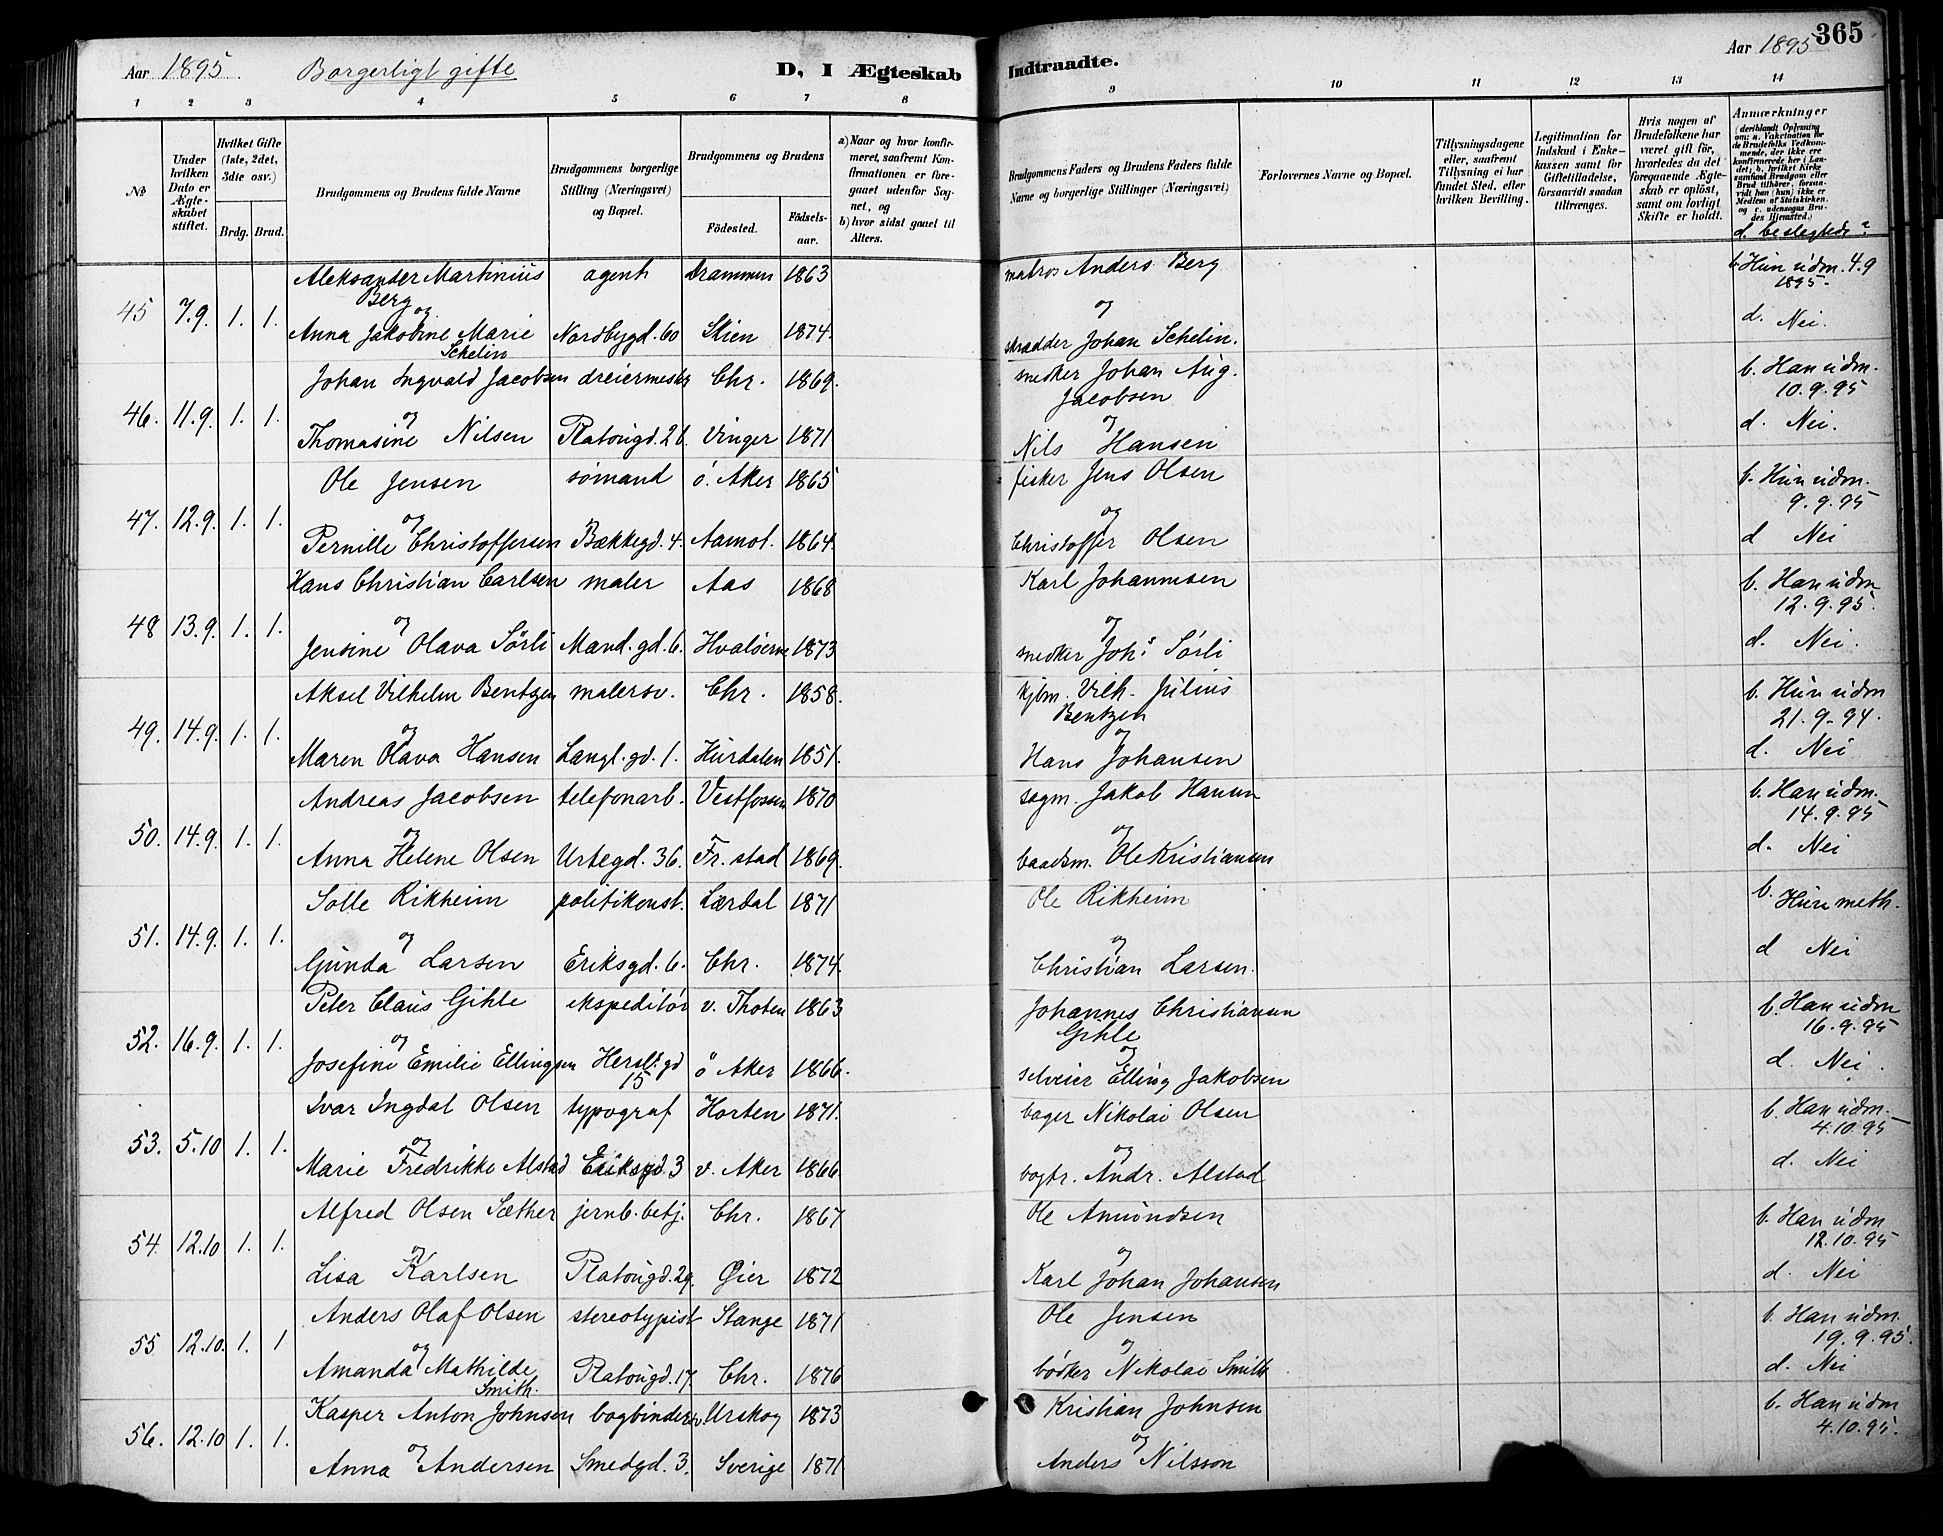 Aar 1895. Borgerligt gifte D, I Ægteskab Indtraadte. Aar 1895 365
1 2 3 4 5 6 7 8 9 10 11 12 13 14
No
Under hvilken Dato er Ægteskabet stiftet.
Hvilket Gifte (1ste, 2det, 3die osv.)
Brdg. Brud.
Brudgommens og Brudens fulde Navne
Brudgommens borgerlige Stilling (Næringsvei) og Bopæl.
Brudgommens og Brudens
Fødested. Fødselsaar.
a) Naar og hvor konfirmeret, saafremt Konfirmationen er foregaaet udenfor Sognet, og
b) hvor sidst gaaet til Alters.
Brudgommens Faders og Brudens Faders fulde Navne og borgerlige Stillinger (Næringsvei)
Forlovernes Navne og Bopæl.
Tillysningsdagene eller, saafremt Tillysning ei har fundet Sted, efter hvilken Bevilling.
Legitimation for Indskud i Enkekassen samt for Giftetilladelse, forsaavidt saadan tiltrænges.
Hvis nogen af Brudefolkene har været gift før, hvorledes da det foregaaende Ægteskab er opløst, samt om lovligt Skifte er holdt.
Anmærkninger
(deriblandt Oplysning om: a. Vakcination for de Brudefolks Vedkommende, der ikke ere konfirmerede her i Landet; b. hvilket Kirkesamfund Brudgom eller Brud tilhører, forsaavidt han (hun) ikke er Medlem af Statskirken, og c. udensogns Brudes Hjemsted.)
d. beslegtede?
Aleksander Martinius agent Drammen 1863 matros Anders Berg b. Hun udm. 4.9
Berg 1895.
45 7.9. 1. 1. og og d. Nei.
Anna Jakobine Marie Nordbygd. 60 Skien 1874. skrædder Johan Schelin.
Schelin
Johan Ingvald Jacobsen dreiermester Chr. 1869. snedker Johan Aug. b. Han udm.
Jacobsen 10.9.95
46. 11.9. 1. 1. og og d. Nei.
Thomasine Nilsen Platougd. 26. Vinger 1871 Nils Hansen
Ole Jensen sømand ö. Aker 1865 fisker Jens Olsen b. Hun udm.
9.9.95
47. 12.9. 1. 1. og og d Nei
Pernille Christoffersen Bækkegd. 4. Aamot. 1864. Christoffer Olsen
Hans Christian Carlsen maler Aas 1868 Karl Johannesen b. Han udm
12.9.95.
48 13.9. 1. 1. og og d. Nei.
Jensine Olava Sørli Mand. gd. 6. Hvaløerne 1873 snedker Johs. Sørli
Aksel Vilhelm Bentzen malersv. Chr. 1858. kjbm. Vilh. Julius b. Hun udm
Bentzen 21.9.94.
49. 14.9. 1. 1. og og d. Nei
Maren Olava Hansen Langl. gd. 1. Hurdalen 1851. Hans Johansen
Andreas Jacobsen telefonarb. Vestfossen 1870 sagm. Jakob Hansen b. Han udm.
14.9.95
50. 14.9. 1. 1. og og d. Nei
Anna Helene Olsen Urtegd. 36. Fr. stad 1869. baadsm. Ole Kristiansen
Solle Rikheim politikonst. Lærdal 1871 Ole Rikheim b. Hun meth.
51. 14.9. 1. 1. og og d Nei
Gunda Larsen Eriksgd. 6. Chr. 1874. Christian Larsen.
Peter Claus Gihle ekspeditør v. Thoten 1863 Johannes Christiansen b. Han udm
Gihle 16.9.95
52. 16.9. 1. 1. og og d. Nei.
Josefine Emilie Ellingsen Hersl. gd 15 ö Aker 1866. selveier Elling Jakobsen
Ivar Ingdal Olsen typograf Horten 1871. bager Nikolai Olsen b. Han udm.
4.10.95
53. 5.10 1. 1. og og d. Nei
Marie Fredrikke Alstad Eriksgd. 3 v. Aker 1866 bogtr. Andr. Alstad
Alfred Olsen Sæther jernb. betj. Chr. 1867 Ole Amundsen b. Han udm
12.10.95
54. 12.10 1. 1. og og d. Nei
Lisa Karlsen Platougd. 29. Øier 1872 Karl Johan Johansen
Anders Olaf Olsen stereotypist Stange 1871 Ole Jensen b. Han udm.
19.9.95.
55 12.10. 1. 1 og og d. Nei
Amanda Mathilde Platougd. 17. Chr. 1876 bødker Nikolai Smith
Smith.
Kasper Anton Johnsen bogbinder Urskog 1873 Kristian Johnsen b. Han udm
4.10.95.
56. 12.10 1. 1. og og
Anna Andersen Smedgd. 3. Sverige 1871 Anders Nilsson